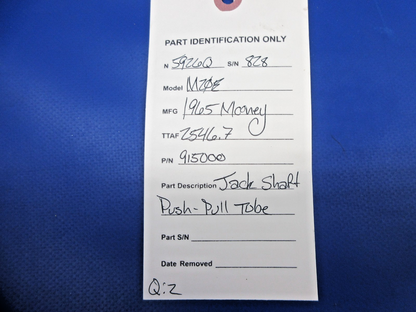 PART IDENTIFICATION ONLY
N 5926Q S/N 828
Model M20E
MFG 1965 Mooney
TTAF 2546.7
P/N 915000
Part Description Jack Shaft
Push-Pull Tube
Part S/N
Date Removed
Q:2